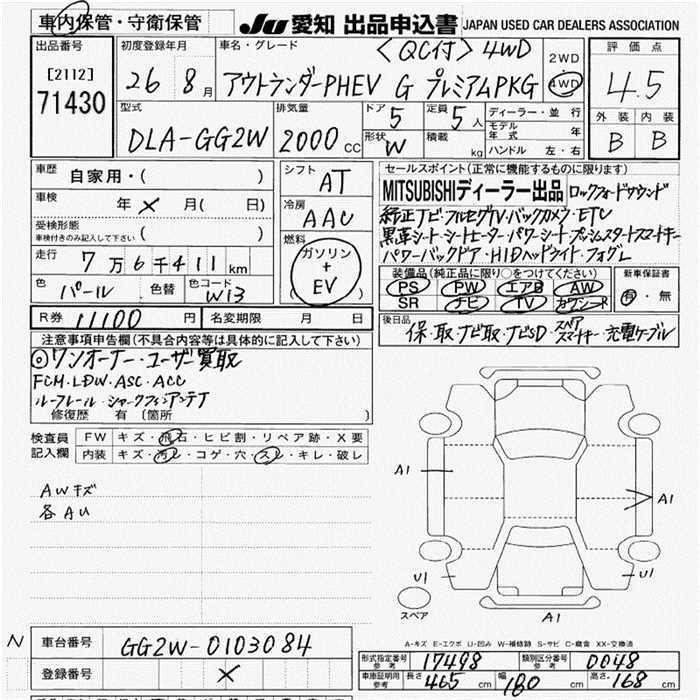 車内保管・守衛保管 JU 愛知 出品申込書 JAPAN USED CAR DEALERS ASSOCIATION
出品番号 初度登録年月 車名・グレード 〈QC付〉4WD 2WD 評価点
[2112] 26 8月 アウトランダーPHEV G プレミアムPKG 4WD 4.5
71430 型式 排気量 ドア 5 定員 5人 ディーラー・並行 外装 内装
DLA-GG2W 2000cc 形状 W 積載 kg モデル年式 年 B B
ハンドル 左・右
車歴 自家用・( ) シフト AT セールスポイント(正常に機能するものに限ります)
車検 年 × 月( 日) 冷房 AAC MITSUBISHIディーラー出品 ロックフォードサウンド
受検形態 ( ) 純正ナビ・フルセグTV・バックカメラ・ETC
車検付きのみ記入して下さい 燃料 黒革シート・シートヒーター・パワーシート・プッシュスタートスマートキー
走行 7万6千411km ガソリン+EV パワーバックドア・HIDヘッドライト・フォグL
色 パール 色替 色コード W13 装備品(純正品に限り○をつけてください) 新車保証書
PS PW エアB AW 有・無
SR ナビ TV カワシート
R券 11100円 名変期限 月 日 後日品 保・取・ナビ取・ナビSD・スペアスマートキー・充電ケーブル
注意事項申告欄(不具合内容等は具体的に記入して下さい)
◎ワンオーナー・ユーザー買取
FCM・LDW・ASC・ACC
ルーフレール・シャークフィンアンテナ
修復歴 有 (箇所
検査員記入欄 FW キズ・飛石・ヒビ割・リペア跡・X要
内装 キズ・汚レ・コゲ・穴・スレ・キレ・破レ
AWキズ
各AU
A1 A1
U1 U1
スペア A1
A-キズ E-エクボ U-凹み W-補修跡 S-サビ C-腐食 XX-交換済
N 車台番号 GG2W-0103084 形式指定番号 参考 17498 類別区分番号 参考 0048
登録番号 × 車庫証明用 参考 長さ 465cm 幅 180cm 高さ 168cm